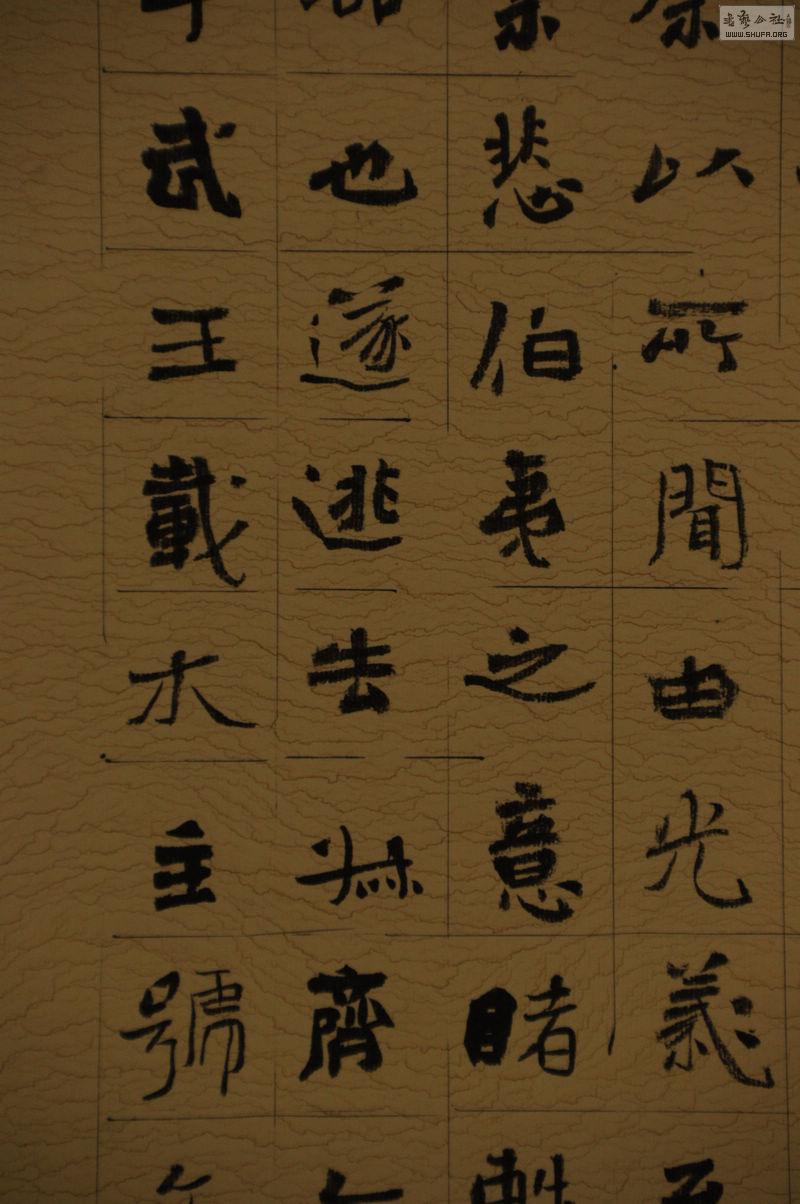 書藝公社
WWW.SHUFA.ORG
以所聞由光義至
悲伯夷之意睹
也遂逃去叔齊
武王載木主號